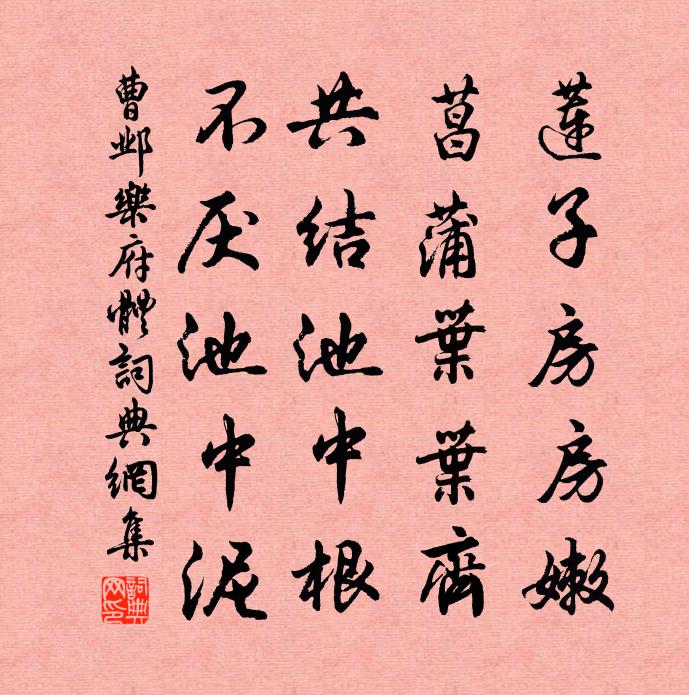 蓮子房房嫩
菖蒲葉葉齊
共結池中根
不厌池中泥
曹邺樂府體詞典網集
詞典網印